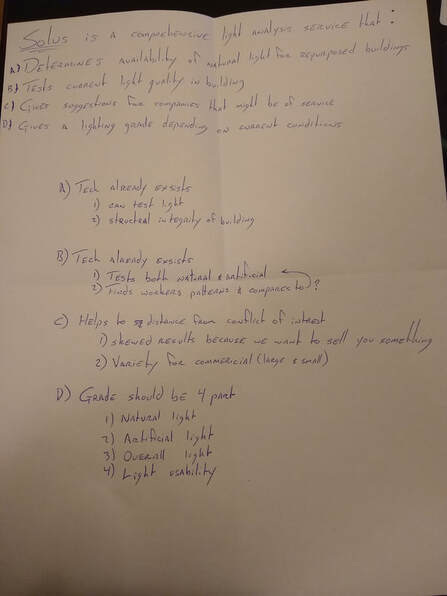 Solus is a comprehensive light analysis service that:
A) Determines availability of natural light for repurposed buildings
B) Tests current light quality in building
C) Gives suggestions for companies that might be of service
D) Gives a lighting grade depending on current conditions
A) Tech already exsists
1) can test light
2) structral integrity of building
B) Tech already exsists
1) Tests both natural & artificial
2) Finds workers patterns & compares to ?
C) Helps to distance from conflict of interest
1) skewed results because we want to sell you something
2) Variety for commericial (large & small)
D) Grade should be 4 part
1) Natural light
2) Artificial light
3) Overall light
4) Light usability